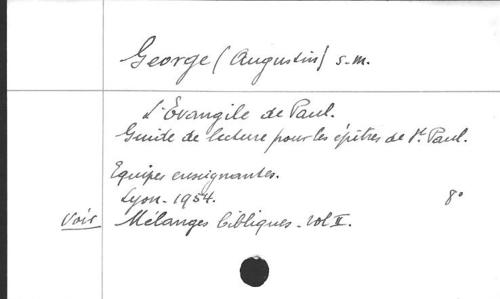 George (Augustin) s.m.
L'Evangile de Paul.
Guide de lecture pour les épîtres de St. Paul.
Equipes enseignantes.
Lyon - 1954. 8°
Voir Mélanges bibliques - vol II.